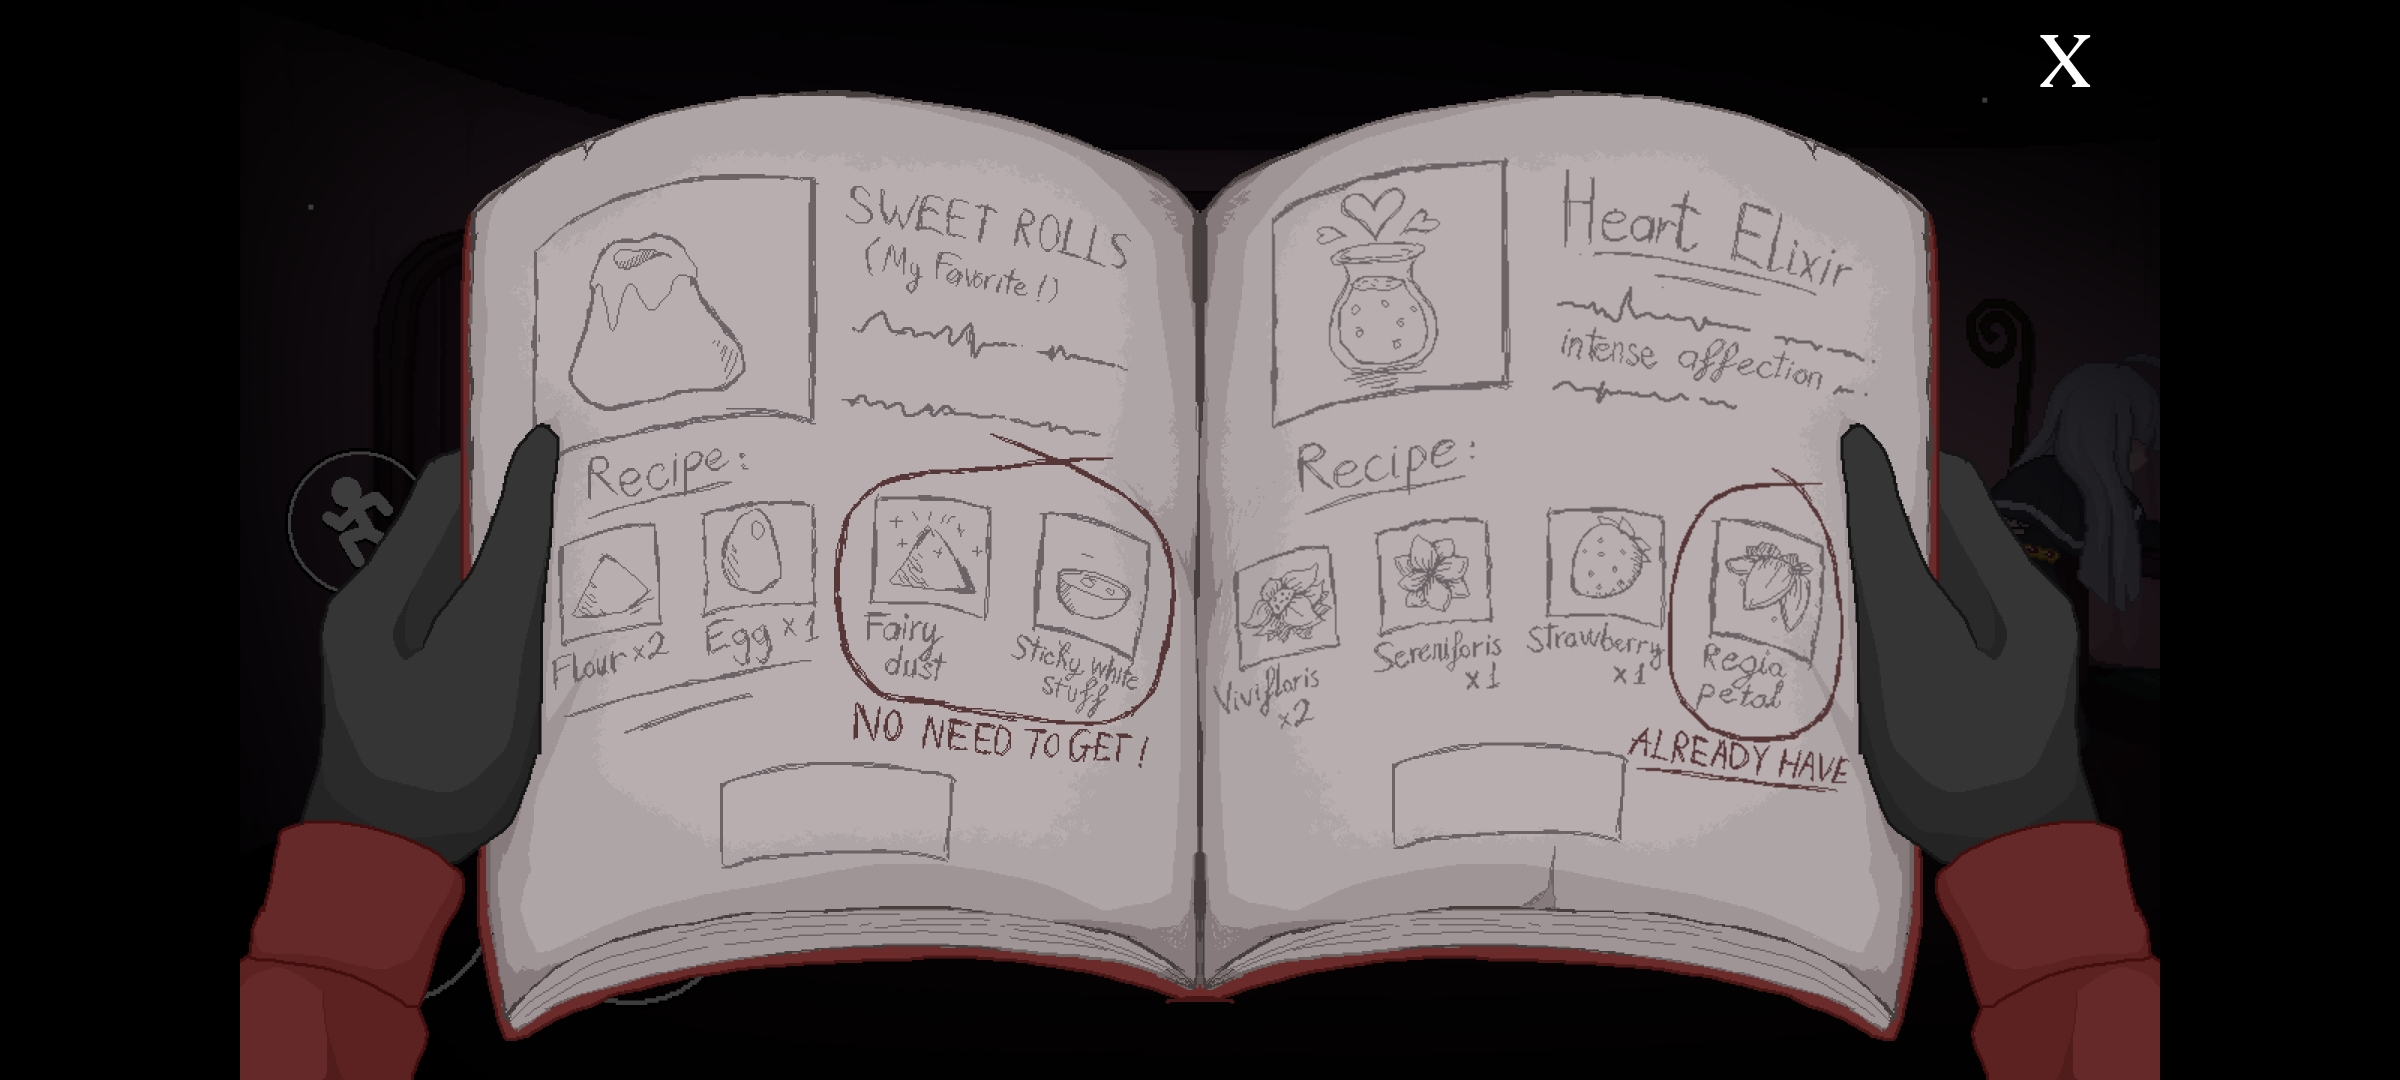 X
SWEET ROLLS
(My Favorite!)
Recipe:
Flour x2
Egg x1
Fairy
dust
Sticky white
stuff
NO NEED TO GET!
Heart Elixir
intense affection
Recipe:
Vivifloris
x2
Sereniforis
x1
Strawberry
x1
Regia
petal
ALREADY HAVE